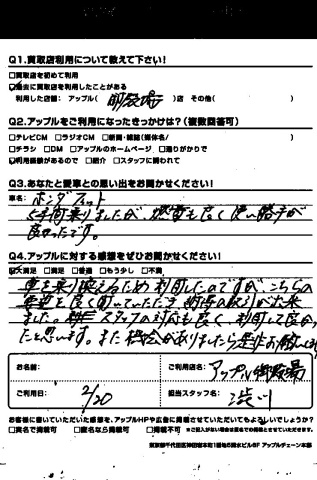 Q1.買取店利用について教えて下さい!
□買取店を初めて利用
☑過去に買取店を利用したことがある
利用した店舗: アップル( 御殿場 )店 その他( )
Q2.アップルをご利用になったきっかけは?(複数回答可)
□テレビCM □ラジオCM □新聞・雑誌(媒体名/ )
□チラシ □DM □アップルのホームページ □通りがかりで
☑利用価値があるので □紹介 □スタッフに誘われて
Q3.あなたと愛車との思い出をお聞かせください!
車名: ホンダ フィット
5年間乗りましたが、燃費も良く使い勝手が
良かったです。
Q4.アップルに対する感想をぜひお聞かせください!
☑大満足 □満足 □普通 □もう少し □不満
車を乗り換えるため利用したのですが、こちらの
要望を良く聞いていただき、納得の取引が出来
ました。スタッフの対応も良く、利用して良かっ
たと思います。また機会がありましたら是非お願いします
お名前:
ご利用店名: アップル御殿場
ご利用日: 2/20
担当スタッフ名: 渋川
お客様に書いていただいた感想を、アップルHPや広告に掲載させていただいてもよろしいでしょうか?
□実名で掲載可 □匿名なら掲載可 □掲載不可 ※ご記入がない場合は匿名での掲載とさせていただきます。